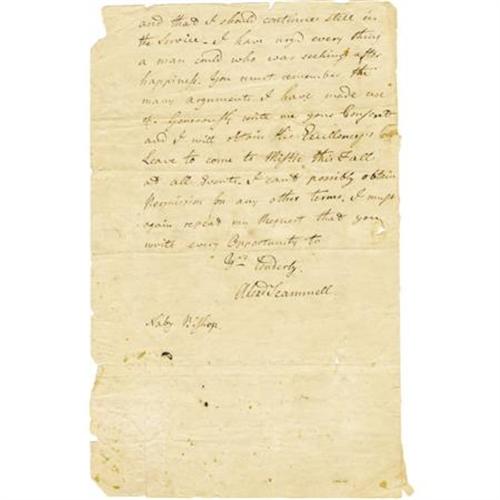 and that I should continue still in
the Service. I have urg'd every thing
a man could who was seeking after
happiness. You must remember the
many arguments I have made use
of. Generously write me your Consent
and I will obtain his Excellency's
Leave to come to Mistic this Fall
at all Events. I can't possibly obtain
Permission on any other terms. I must
again repeat my Request that you
write every Opportunity to
Yrs tenderly
Alexr Scammell
Naby Bishop